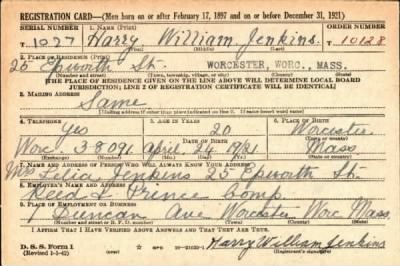 REGISTRATION CARD—(Men born on or after February 17, 1897 and on or before December 31, 1921)
SERIAL NUMBER 1. NAME (Print) ORDER NUMBER
T 1027 Harry William Jenkins T 10128
(First) (Middle) (Last)
2. PLACE OF RESIDENCE (Print)
25 Epworth St. WORCESTER, WORC., MASS.
(Number and street) (Town, township, village, or city) (County) (State)
[THE PLACE OF RESIDENCE GIVEN ON THE LINE ABOVE WILL DETERMINE LOCAL BOARD
JURISDICTION; LINE 2 OF REGISTRATION CERTIFICATE WILL BE IDENTICAL]
3. MAILING ADDRESS
Same
[Mailing address if other than place indicated on line 2. If same insert word same]
4. TELEPHONE 5. AGE IN YEARS 6. PLACE OF BIRTH
Yes 20 Worcester
DATE OF BIRTH
Worc 3-8091 April 24 1921 Mass
7. NAME AND ADDRESS OF PERSON WHO WILL ALWAYS KNOW YOUR ADDRESS
Mrs Lelia Jenkins 25 Epworth St.
8. EMPLOYER'S NAME AND ADDRESS
Reed & Prince Comp.
9. PLACE OF EMPLOYMENT OR BUSINESS
1 Duncan Ave Worcester Worc Mass.
(Number and street or R. F. D. number) (Town) (County) (State)
I AFFIRM THAT I HAVE VERIFIED ABOVE ANSWERS AND THAT THEY ARE TRUE.
D. S. S. Form 1
(Revised 1-1-42) Harry William Jenkins